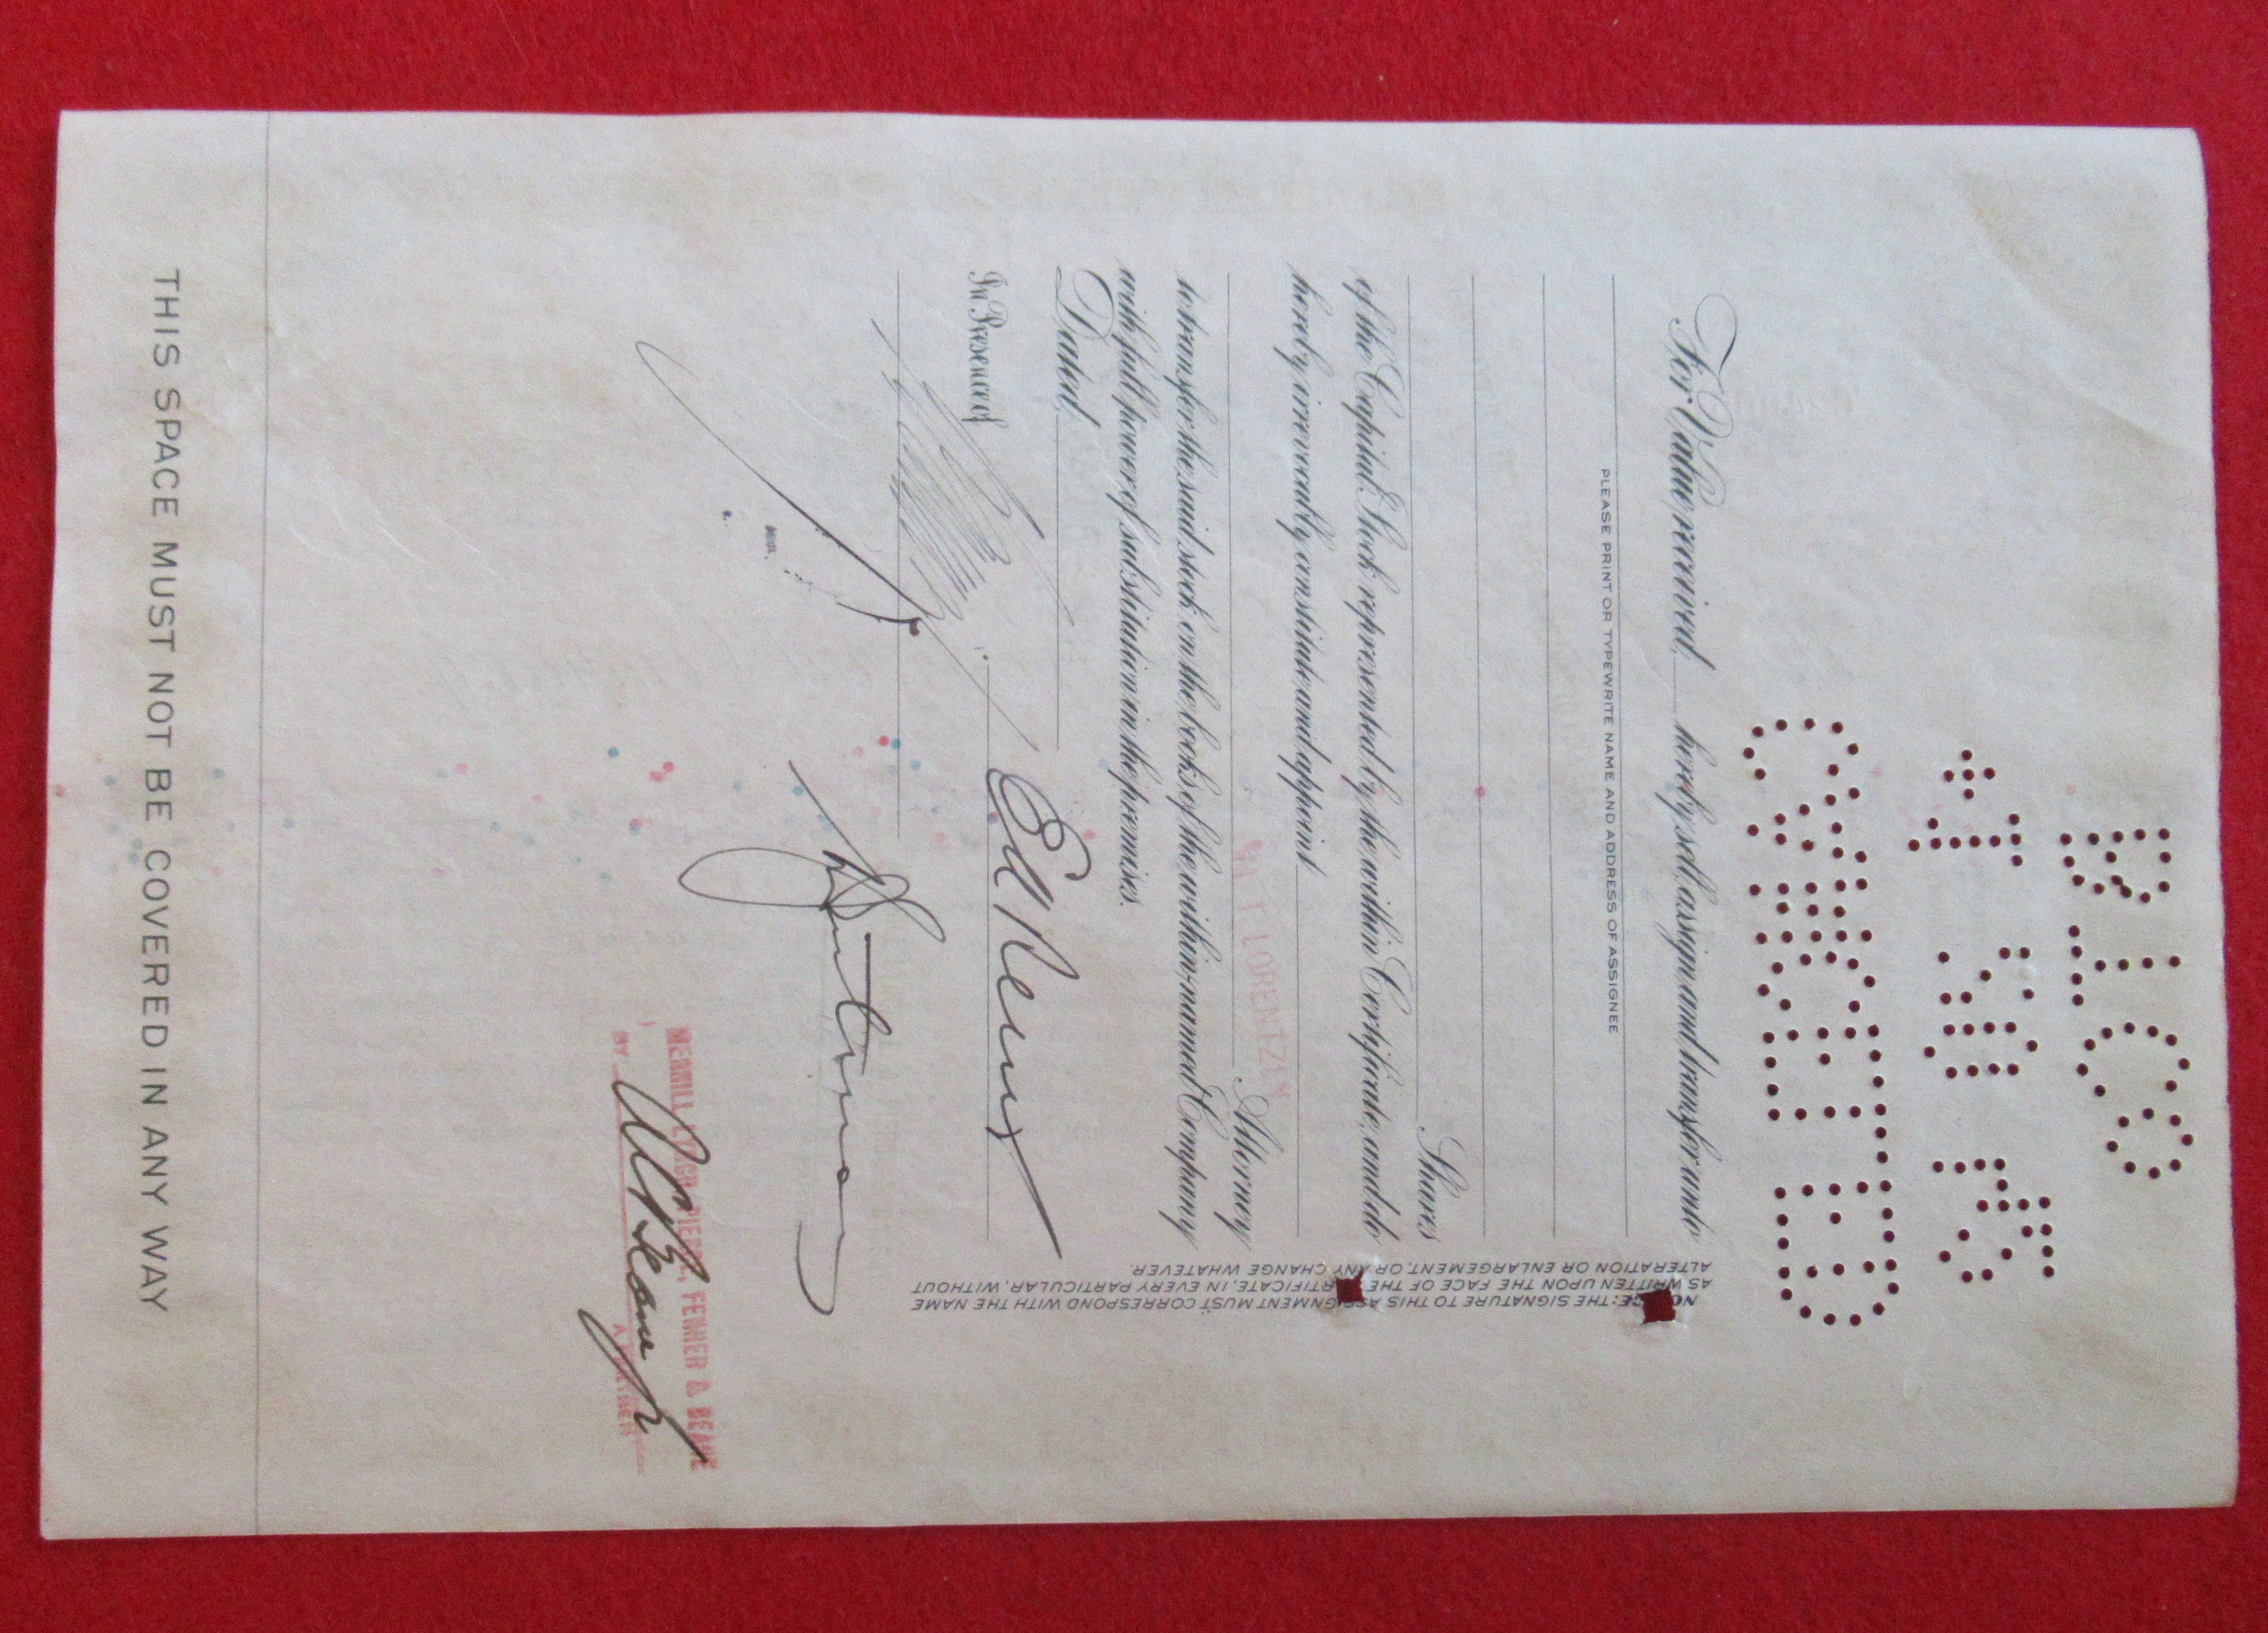 For Value received, hereby sell, assign and transfer unto
PLEASE PRINT OR TYPEWRITE NAME AND ADDRESS OF ASSIGNEE
Shares
of the Capital Stock represented by the within Certificate, and do
hereby irrevocably constitute and appoint
LORENTZEN
Attorney
to transfer the said stock on the books of the within-named Company
with full power of substitution in the premises.
Dated,
In Presence of
NOTICE: THE SIGNATURE TO THIS ASSIGNMENT MUST CORRESPOND WITH THE NAME
AS WRITTEN UPON THE FACE OF THE CERTIFICATE, IN EVERY PARTICULAR, WITHOUT
ALTERATION OR ENLARGEMENT, OR ANY CHANGE WHATEVER.
MERRILL LYNCH, PIERCE, FENNER & BEANE
BY
A PARTNER
THIS SPACE MUST NOT BE COVERED IN ANY WAY